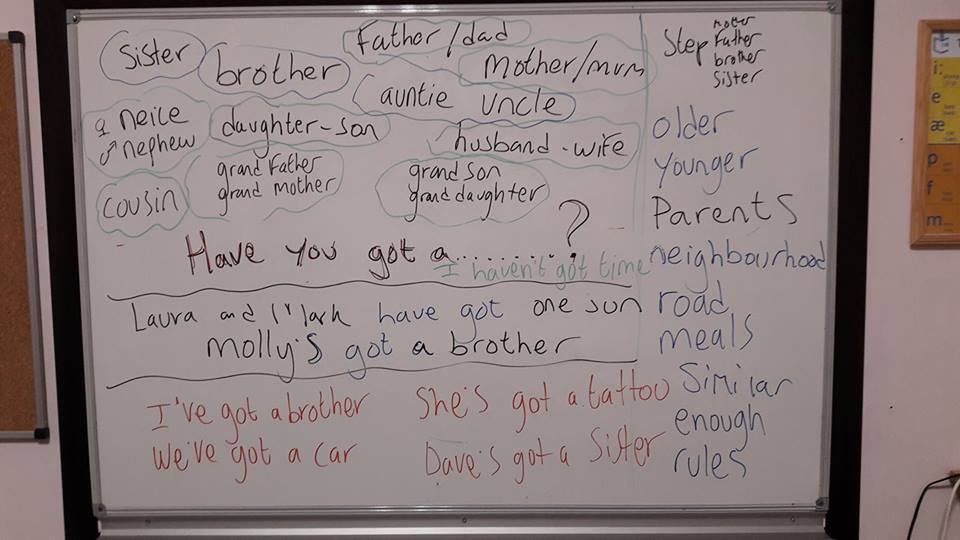 Sister
brother
Father/dad
mother/mum
auntie uncle
♀ neice
♂ nephew
daughter-son
husband-wife
cousin
grand Father
grand mother
grand son
grand daughter
Have you got a..........?
I haven't got time
Laura and have got one son
Molly's got a brother
I've got a brother
She's got a tattoo
We've got a car
Dave's got a Sister
Step
mother
Father
brother
Sister
older
younger
Parents
neighbourhood
road
meals
Similar
enough
rules
i:
e
æ
p
f
m